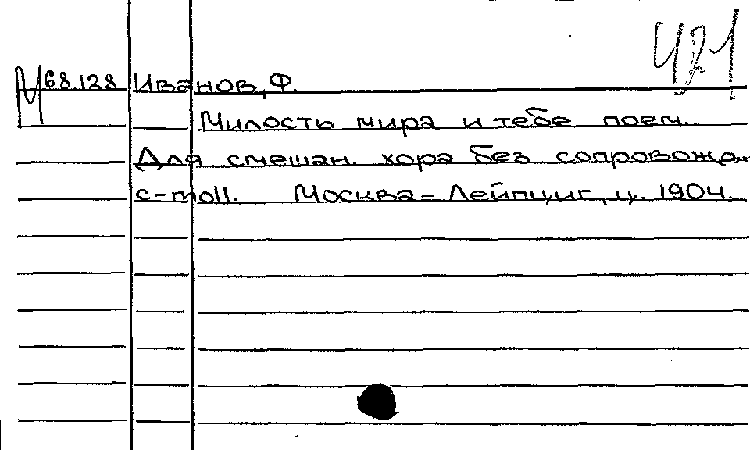 421
М 68.128 Иванов, Ф.
Милость мира и тебе поем.
Для смешан. хора без сопровожд.
c-moll. Москва-Лейпциг, ц. 1904.